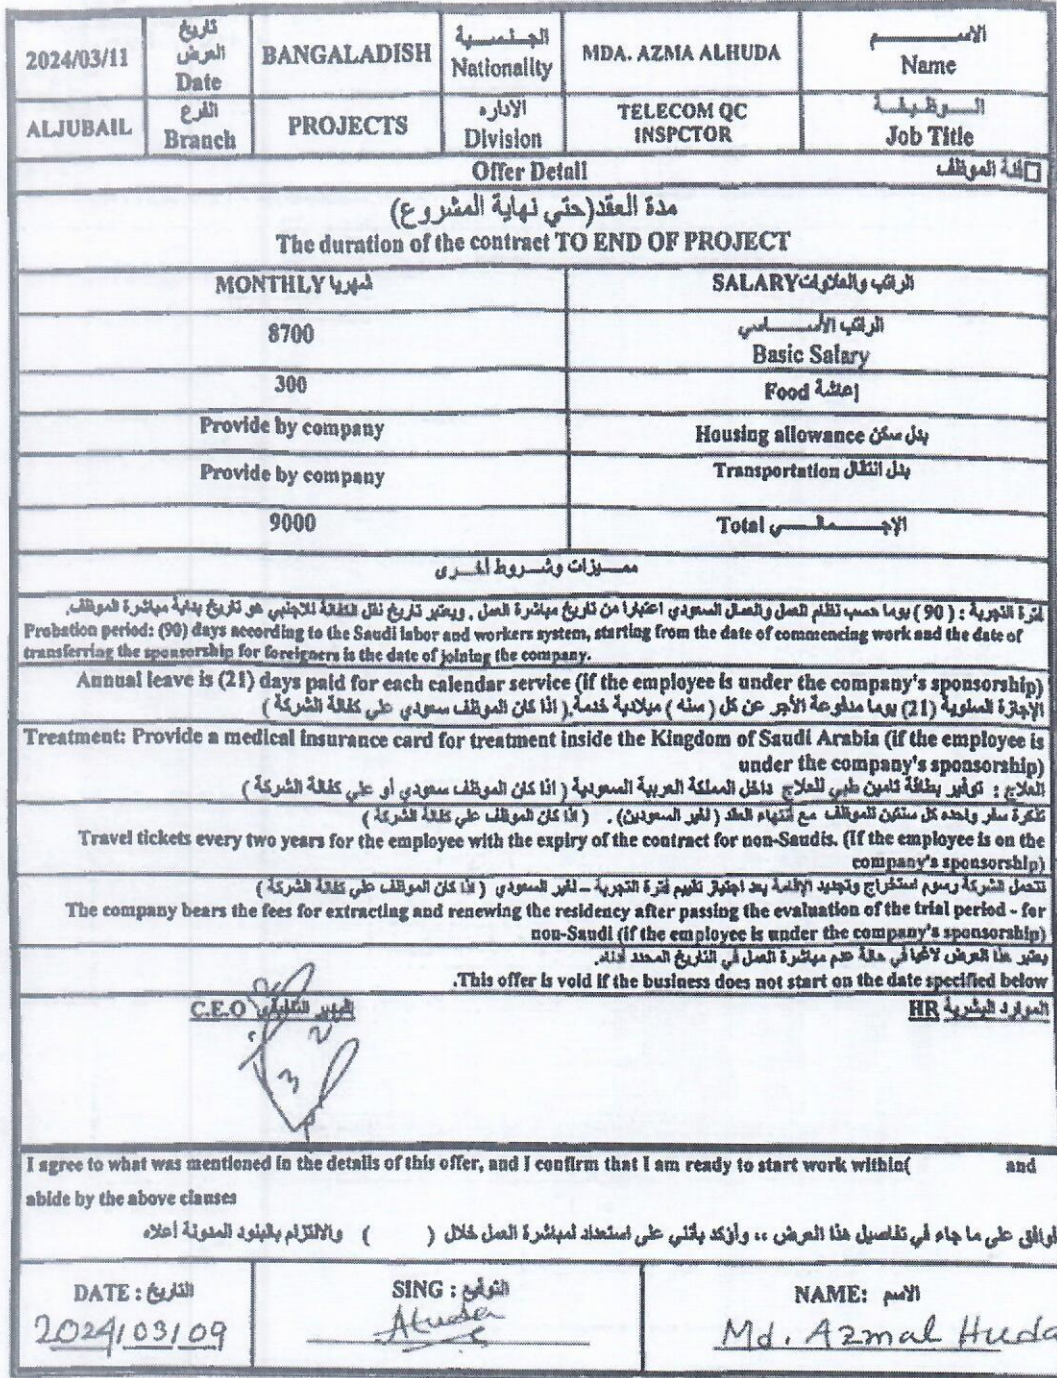 2024/03/11 تاريخ العرض Date BANGALADISH الجنسية Nationality MDA. AZMA ALHUDA الاسم Name
ALJUBAIL الفرع Branch PROJECTS الاداره Division TELECOM QC INSPCTOR الوظيفة Job Title
Offer Detail فئة الموظف
مدة العقد(حتي نهاية المشروع)
The duration of the contract TO END OF PROJECT
MONTHLY شهريا SALARY الراتب والعلاوات
8700 الراتب الأساسي Basic Salary
300 Food إعاشة
Provide by company Housing allowance بدل سكن
Provide by company Transportation بدل انتقال
9000 Total الإجمالي
مميزات وشروط أخرى
فترة التجربة : ( 90 ) يوما حسب نظام العمل والعمال السعودي اعتبارا من تاريخ مباشرة العمل , ويعتبر تاريخ نقل الكفالة للاجنبي هو تاريخ بداية مباشرة الموظف.
Probation period: (90) days according to the Saudi labor and workers system, starting from the date of commencing work and the date of
transferring the sponsorship for foreigners is the date of joining the company.
Annual leave is (21) days paid for each calendar service (if the employee is under the company's sponsorship)
الإجازة السنوية (21) يوما مدفوعة الأجر عن كل ( سنه ) ميلادية خدمة.( اذا كان الموظف سعودي علي كفالة الشركة )
Treatment: Provide a medical insurance card for treatment inside the Kingdom of Saudi Arabia (if the employee is
under the company's sponsorship)
العلاج : توفير بطاقة تامين طبي للعلاج داخل المملكة العربية السعودية ( اذا كان الموظف سعودي أو علي كفالة الشركة )
تذكرة سفر واحده كل سنتين للموظف مع أنتهاء العقد ( لغير السعودين) . ( اذا كان الموظف علي كفالة الشركة )
Travel tickets every two years for the employee with the expiry of the contract for non-Saudis. (If the employee is on the
company's sponsorship)
تتحمل الشركة رسوم استخراج وتجديد الإقامة بعد اجتياز تقييم فترة التجربة – لغير السعودي ( اذا كان الموظف علي كفالة الشركة )
The company bears the fees for extracting and renewing the residency after passing the evaluation of the trial period - for
non-Saudi (if the employee is under the company's sponsorship)
يعتبر هذا العرض لاغيا في حالة عدم مباشرة العمل في التاريخ المحدد أدناه.
.This offer is void if the business does not start on the date specified below
C.E.O المدير التنفيذي الموارد البشرية HR
I agree to what was mentioned in the details of this offer, and I confirm that I am ready to start work within( and
abide by the above clauses
أوافق على ما جاء في تفاصيل هذا العرض ،، وأؤكد بأنني على استعداد لمباشرة العمل خلال ( ) والالتزام بالبنود المدونة أعلاه
DATE : التاريخ SING : التوقيع NAME: الاسم
2024/03/09 AHuda Md. Azmal Huda